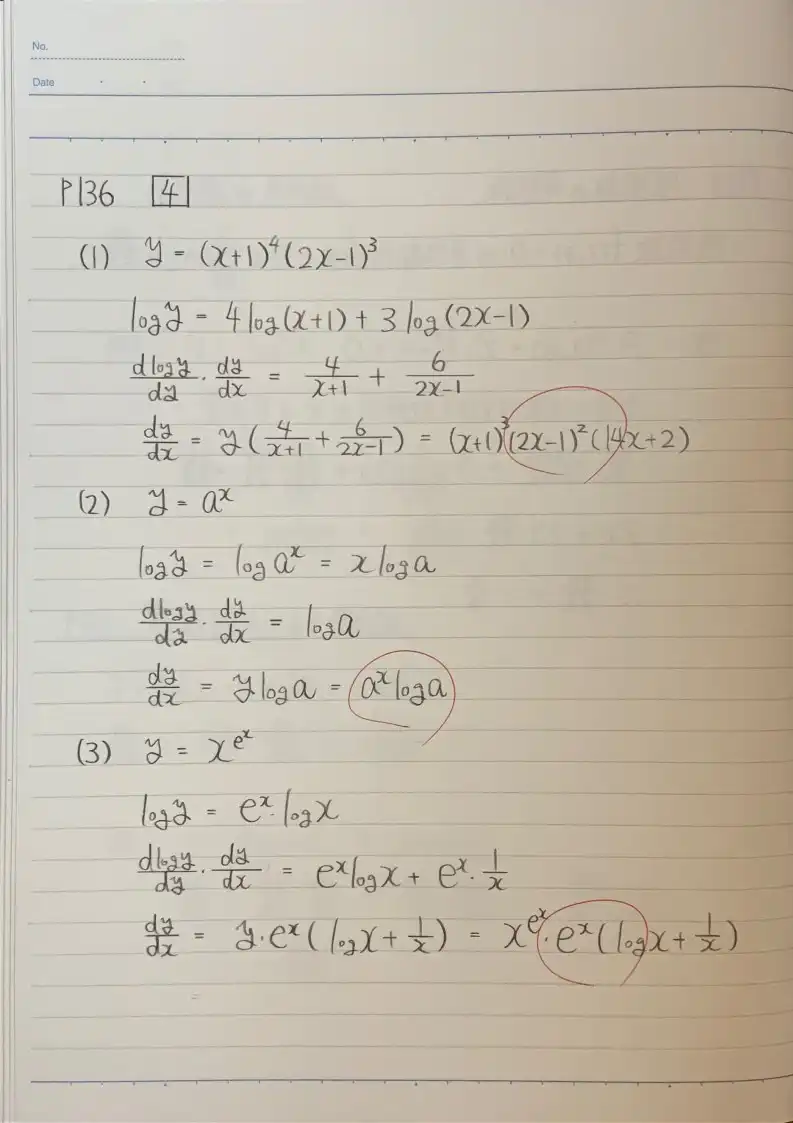 No.
Date
P136 [4]
(1) y = (x+1)⁴(2x-1)³
log y = 4 log(x+1) + 3 log(2x-1)
dlogy/dy · dy/dx = 4/(x+1) + 6/(2x-1)
dy/dx = y(4/(x+1) + 6/(2x-1)) = (x+1)³(2x-1)²(14x+2)
(2) y = aˣ
log y = log aˣ = x log a
dlogy/dy · dy/dx = log a
dy/dx = y log a = aˣ log a
(3) y = x^(eˣ)
log y = eˣ · log x
dlogy/dy · dy/dx = eˣ log x + eˣ · 1/x
dy/dx = y · eˣ(log x + 1/x) = x^(eˣ) · eˣ(log x + 1/x)